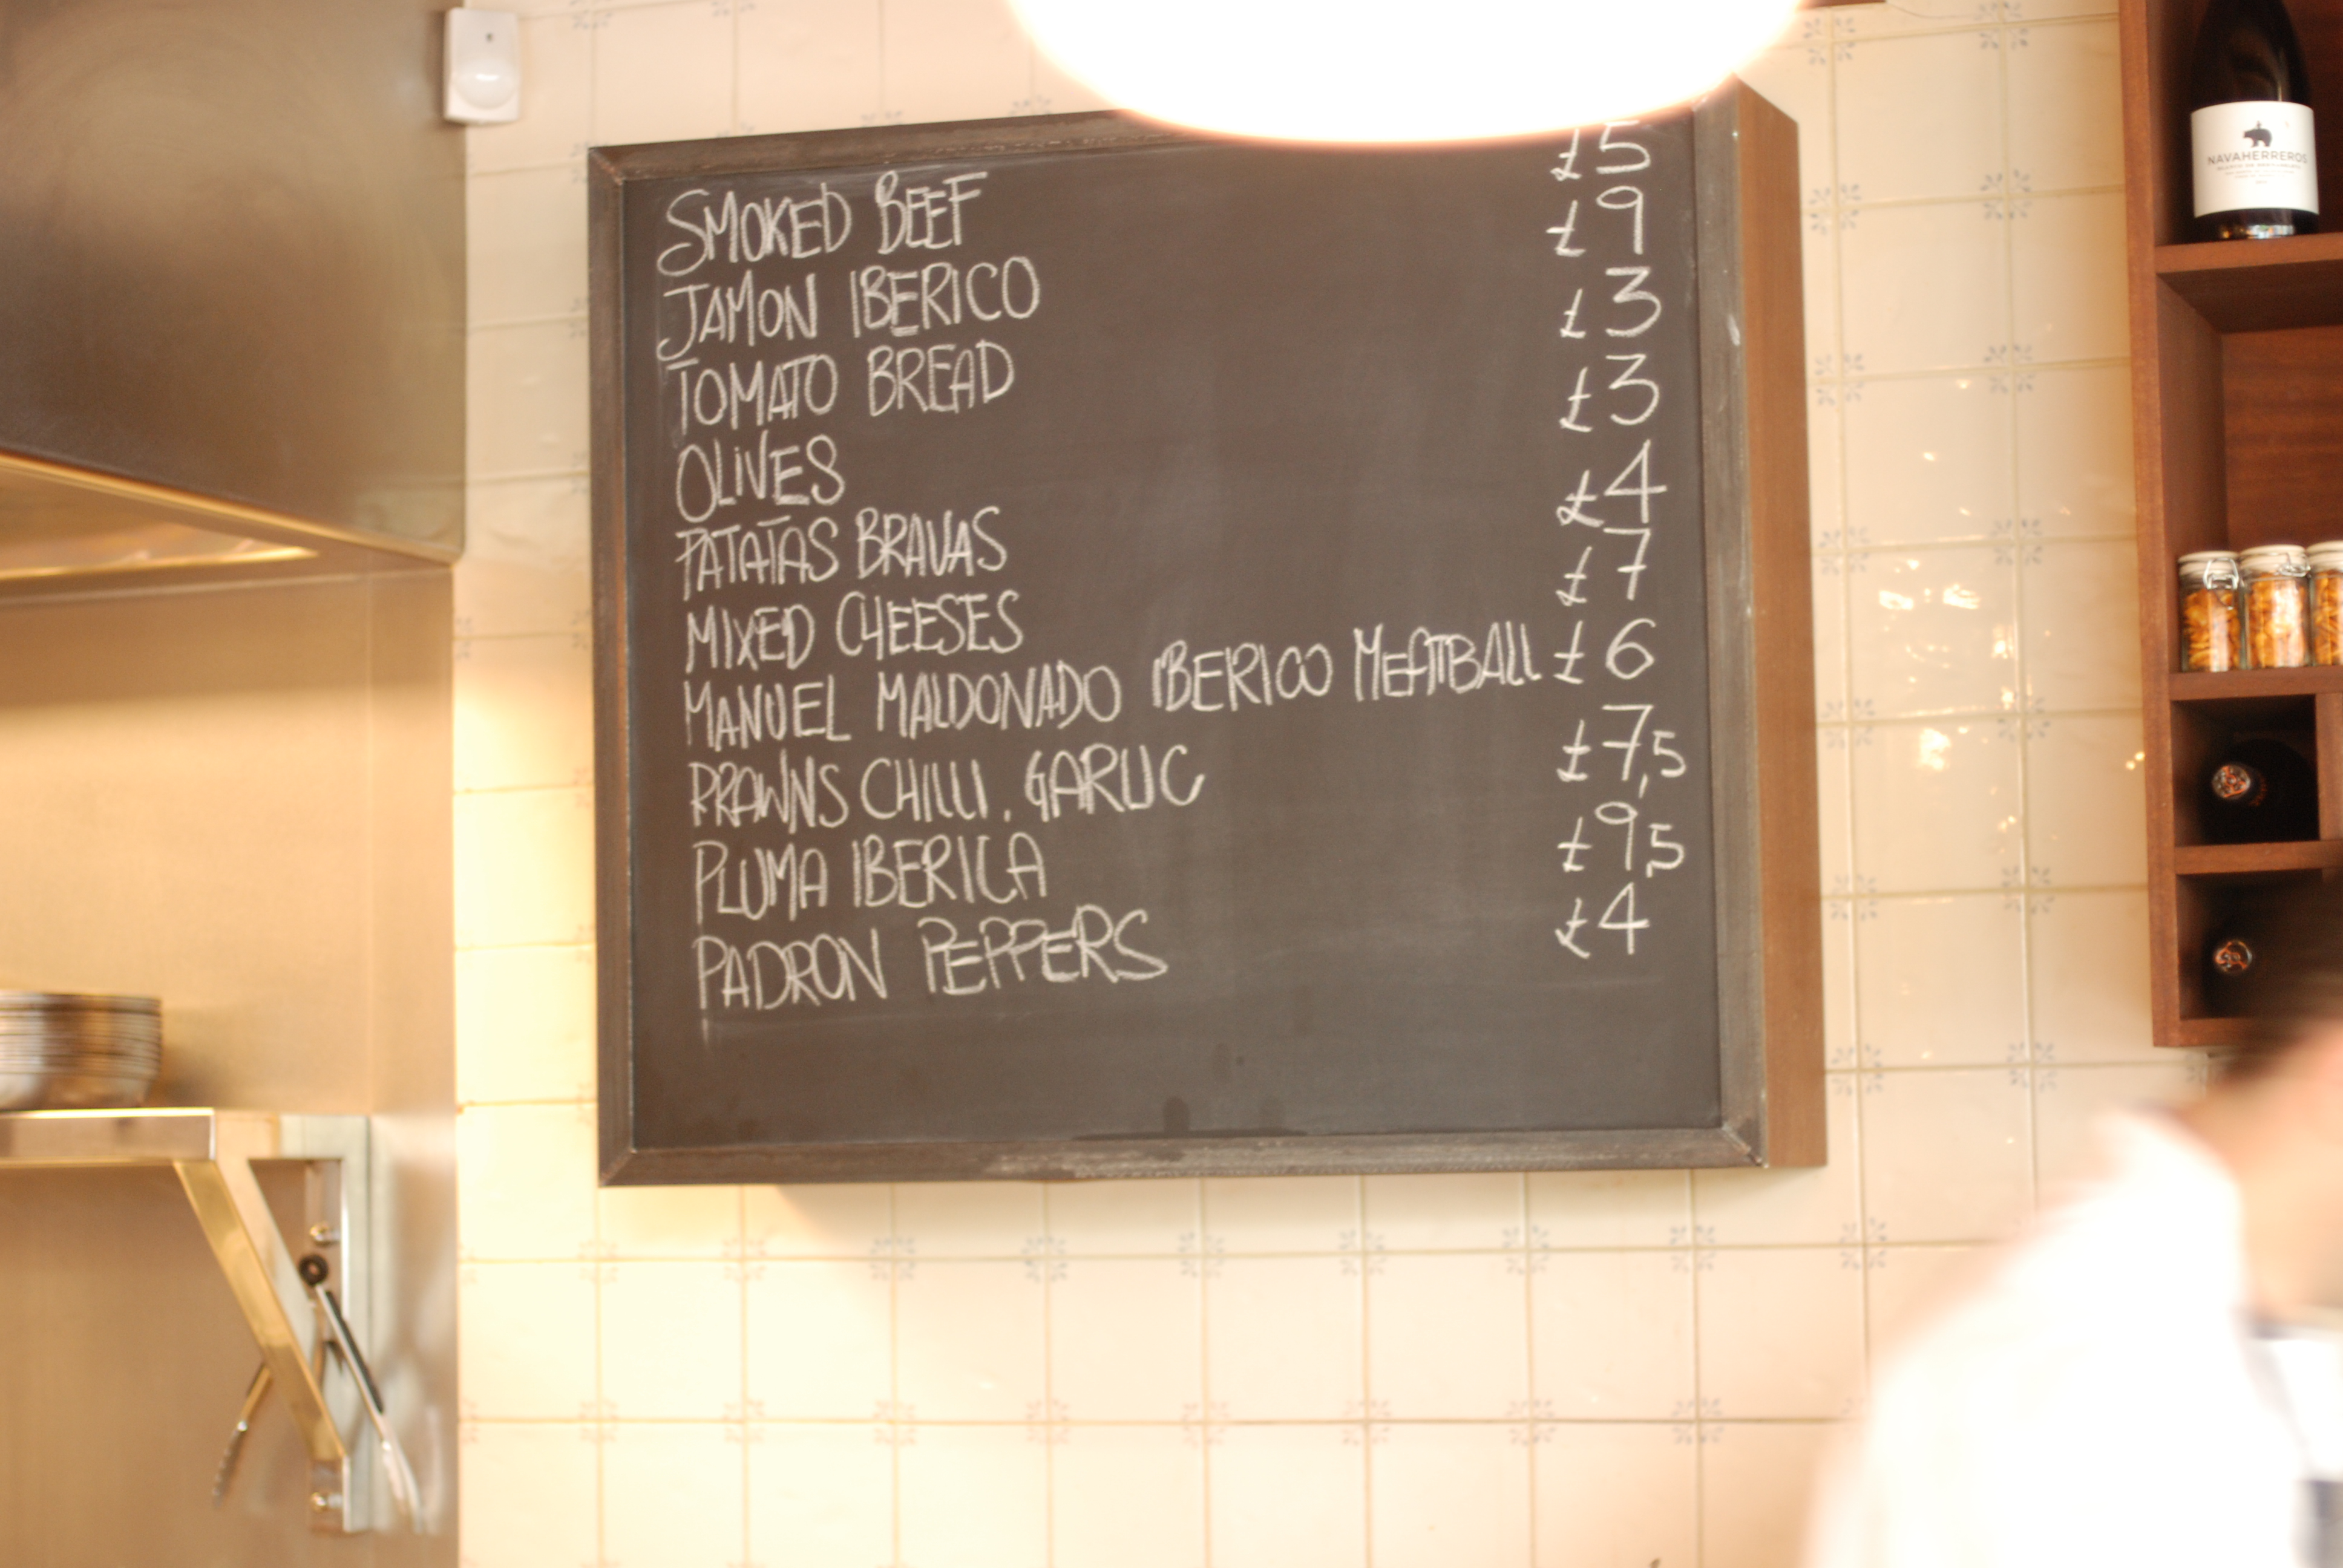 SMOKED BEEF £5
JAMON IBERICO £9
TOMATO BREAD £3
OLIVES £3
PATATAS BRAVAS £4
MIXED CHEESES £7
MANUEL MALDONADO IBERICO MEATBALL £6
PRAWNS CHILLI. GARLIC £7,5
PLUMA IBERICA £9,5
PADRON PEPPERS £4
NAVAHERREROS